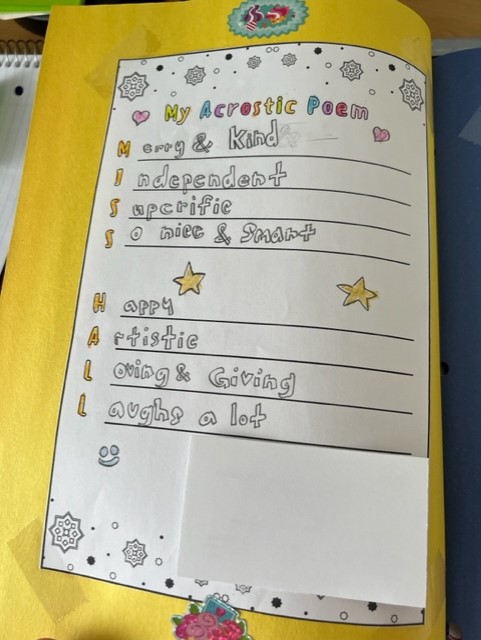 My Acrostic Poem
Merry & Kind
Independent
Supcrific
So nice & Smart
Happy
Artistic
Loving & Giving
Laughs a lot